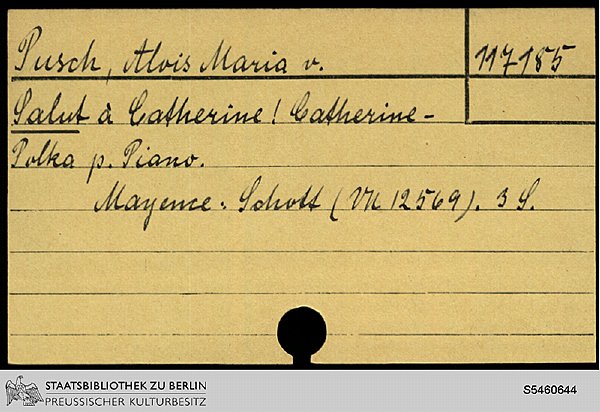 Pusch, Alois Maria v.
117185
Salut à Catherine! Catherine-
Polka p. Piano.
Mayence: Schott (VN 12569). 3 S.
STAATSBIBLIOTHEK ZU BERLIN
PREUSSISCHER KULTURBESITZ
S5460644